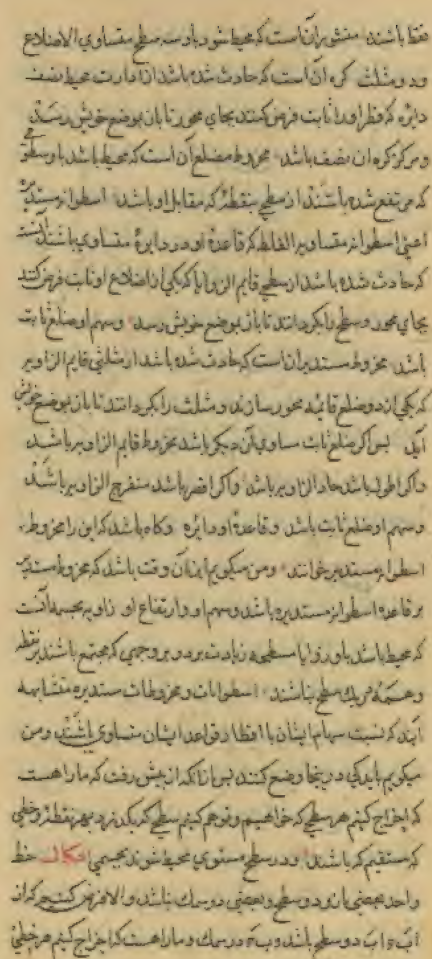 نقطا باشند منشور آن است که محیط شود باو سه سطح متساوی الاضلاع
ود و مثلث کره آن است که حادث شده باشد از ادارت محیط نصف
دایره که قطر او را ثابت فرض کنند بجای محور تا باز بموضع خویش رسد
ومرکز کره ان نصف باشد مخروط مضلع آن است که محیط باشد باو سطوح
که مرتفع شده باشند از سطحی بنقطهٔ که مقابل او باشد اسطوانه مستدیره
اعنی اسطوانه متساویه الغلظ که قاعدهٔ او دو دایرهٔ متساوی باشند آنست
که حادث شده باشد از سطحی قایم الزوایا که یکی از اضلاع او ثابت فرض کنند
بجای محور وسطح را بگردانند تا باز بموضع خویش رسد وسهم او ضلع ثابت
باشد مخروط مستدیر آن است که حادث شده باشد از مثلثی قایم الزاویه
که یکی از دو ضلع قائمه محور سازند و مثلث را بگردانند تا باز بموضع خویش
آید پس اگر ضلع ثابت مساوی آن دیگر باشد مخروط قایم الزاویه باشد
واگر اطول باشد حاد الزاویه باشد واگر اقصر باشد منفرج الزاویه باشد
وسهم او ضلع ثابت باشد وقاعدهٔ او دایره وگاه باشد که این را مخروط
اسطوانه مستدیر خوانند ومن میگویم این آن وقت باشد که مخروط مستدیر
بر قاعده اسطوانه مستدیره باشد وسهم او وارتفاع او زاویه مجسمه آنست
که محیط باشد باو زوایا مسطحه زیادت بر دو بر وجهی که مجتمع باشند بر نقطه
وهمه در یک سطح نباشند اسطوانات ومخروطات مستدیره متشابهه
آنند که نسبت سهام ایشان با اقطار قواعد ایشان متساوی باشند ومن
میگویم باید که در اینجا وضع کنند پس از آنکه از پیش رفت که ما را هست
که اخراج کنیم هر سطحی که خواهیم وتوهم کنیم سطحی که بگذرد بهر نقطه وخطی
که مستقیم که باشند ودو سطح مستوی محیط نشوند بجسمی اشکال خط
واحد بعضی از و در سطح وبعضی در سمک نباشد والا فرض کنیم که از
ا ب ه ا ب در سطح باشد و ب ه در سمک وما را هست که اخراج کنیم هر خطی